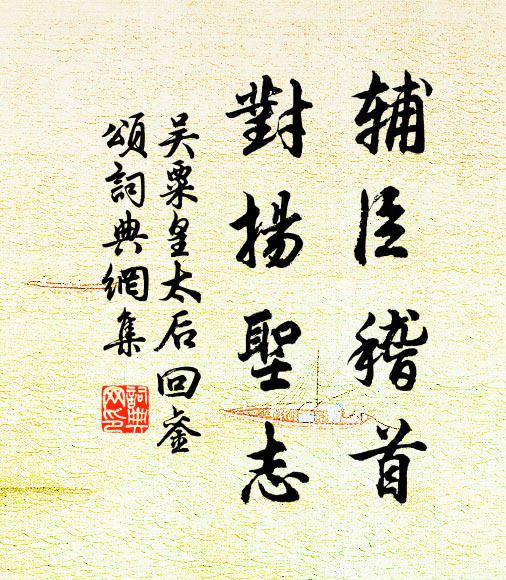 辅臣稽首
對揚聖志
吴栗皇太后回銮
頌詞典網集
詞典
网印